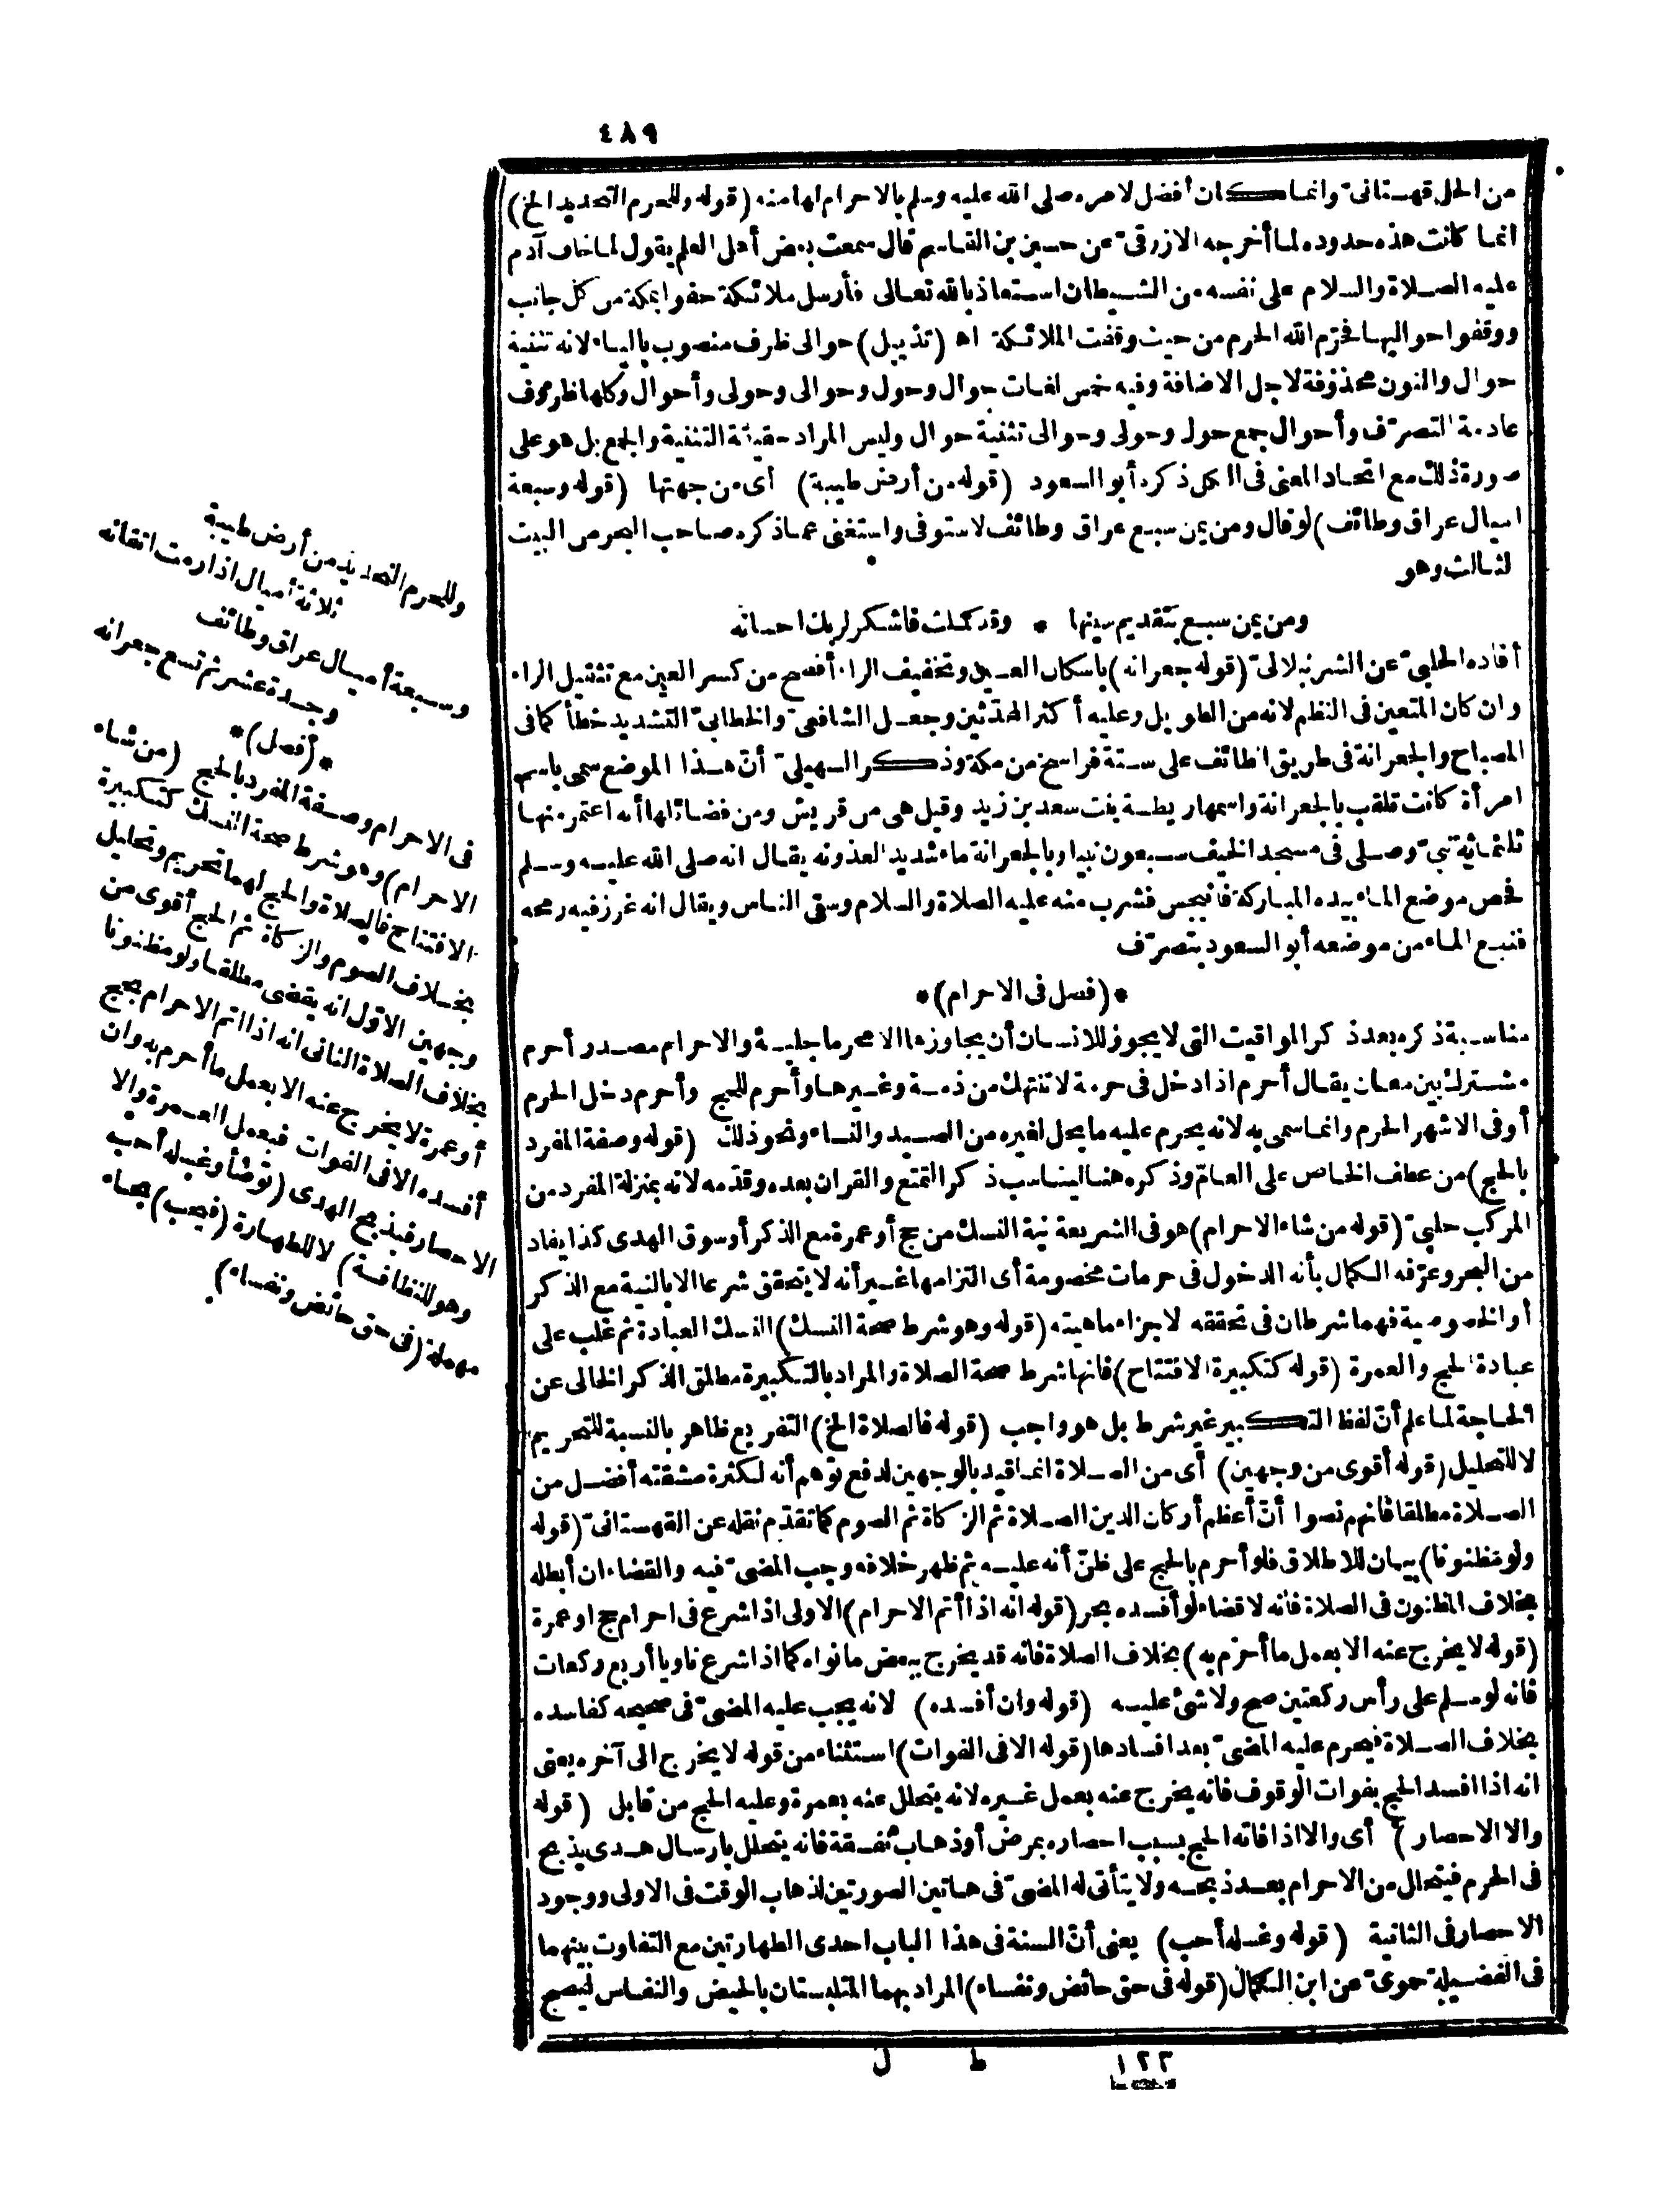 ٤٨٩
من الحل قهستانى وانما كان أفضل لامره صلى الله عليه وسلم بالاحرام لها منه (قوله وللحرم التحديد الخ)
انما كانت هذه حدوده لما أخرجه الازرقى عن حسين بن القاسم قال سمعت بعض أهل العلم يقول لما خاف آدم
عليه الصلاة والسلام على نفسه من الشيطان استعاذ بالله تعالى فأرسل ملائكة حفوا بمكة من كل جانب
ووقفوا حواليها فحرّم الله الحرم من حيث وقفت الملائكة اه (تذييل) حوالى ظرف منصوب بالياء لانه تثنية
حوال والنون محذوفة لاجل الاضافة وفيه خمس لغات حوال وحول وحوالى وحولى وأحوال وكلها ظروف
عادمة التصرّف وأحوال جمع حول وحولى وحوالى تثنية حوال وليس المراد حقيقة التثنية والجمع بل هو على
صورة ذلك مع اتحاد المعنى فى الكل ذكره أبو السعود (قوله من أرض طيبة) أى من جهتها (قوله وسبعة
اميال عراق وطائف) لو قال ومن يمن سبع عراق وطائف لاستوفى واستغنى عما ذكره صاحب البحر من البيت
لثالث وهو
ومن يمن سبع بتقديم سينها * وقد كملت فاشكر لربك احسانه
أفاده الحلبىّ عن الشرنبلالىّ (قوله جعرانه) باسكان العين وتخفيف الراء أفصح من كسر العين مع تثقيل الراء
وان كان المتعين فى النظم لانه من الطويل وعليه أكثر المحدّثين وجعل الشافعىّ والخطابىّ التشديد خطأ كما فى
المصباح والجعرانة فى طريق الطائف على ستة فراسخ من مكة وذكر السهيلىّ أنّ هذا الموضع سمى باسم
امرأة كانت تلقب بالجعرانة واسمها ريطة بنت سعد بن زيد وقيل هى من قريش ومن فضائلها أنه اعتمر منها
ثلثمائة نبىّ وصلى فى مسجد الخيف سبعون نبيا وبالجعرانة ماء شديد العذوبة يقال انه صلى الله عليه وسلم
فحص موضع الماء بيده المباركة فانبجس فشرب منه عليه الصلاة والسلام وسقى الناس ويقال انه غرز فيه رمحه
فنبع الماء من موضعه أبو السعود بتصرّف
*(فصل فى الاحرام)*
مناسبة ذكره بعد ذكر المواقيت التى لا يجوز للانسان أن يجاوزها الا محرما جلية والاحرام مصدر أحرم
مشترك بين معان يقال أحرم اذا دخل فى حرمة لا تنتهك من ذمة وغيرها وأحرم للحج وأحرم دخل الحرم
أو فى الاشهر الحرم وانما سمى به لانه يحرم عليه ما يحل لغيره من الصيد والنساء ونحو ذلك (قوله وصفة المفرد
بالحج) من عطف الخاص على العامّ وذكره هنا ليناسب ذكر التمتع والقران بعده وقدّمه لانه بمنزلة المفرد من
المركب حلبىّ (قوله من شاء الاحرام) هو فى الشريعة نية النسك من حج أو عمرة مع الذكر أو سوق الهدى كذا يفاد
من البحر وعرّفه الكمال بأنه الدخول فى حرمات مخصوصة أى التزامها غير أنه لا يتحقق شرعا الا بالنية مع الذكر
أو الخصوصية فهما شرطان فى تحققه لا جزاء ماهيته (قوله وهو شرط صحة النسك) النسك العبادة ثم غلب على
عبادة الحج والعمرة (قوله كتكبيرة الافتتاح) فانها شرط صحة الصلاة والمراد بالتكبيرة مطلق الذكر الخالى عن
الحاجة لما علم أنّ لفظ التكبير غير شرط بل هو واجب (قوله فالصلاة الخ) التفريع ظاهر بالنسبة للتحريم
لا للتحليل (قوله أقوى من وجهين) أى من الصلاة انما قيد بالوجهين لدفع توهم أنه لكثرة مشقته أفضل من
الصلاة مطلقا فانهم نصوا أنّ أعظم أركان الدين الصلاة ثم الزكاة ثم الصوم كما تقدّم نقله عن القهستانىّ (قوله
ولو مظنونا) بيان للاطلاق فلو أحرم بالحج على ظنّ أنه عليه ثم ظهر خلافه وجب المضىّ فيه والقضاء ان أبطله
بخلاف المظنون فى الصلاة فانه لا قضاء لو أفسده بحر (قوله انه اذا أتم الاحرام) الاولى اذا شرع فى احرام حج او عمرة
(قوله لا يخرج عنه الا بعمل ما أحرم به) بخلاف الصلاة فانه قد يخرج ببعض ما نواه كما اذا شرع ناويا أربع ركعات
فانه لو سلم على رأس ركعتين صح ولا شئ عليه (قوله وان أفسده) لانه يجب عليه المضىّ فى صحيحه كفاسده
بخلاف الصلاة فيحرم عليه المضىّ بعد افسادها (قوله الا فى الفوات) استثناء من قوله لا يخرج الى آخره يعنى
انه اذا افسد الحج بفوات الوقوف فانه يخرج عنه بعمل غيره لانه يتحلل عنه بعمرة وعليه الحج من قابل (قوله
والا الاحصار) أى والا اذا فاته الحج بسبب احصاره بمرض أو ذهاب نفقة فانه يتحلل بارسال هدى يذبح
فى الحرم فيتحلل من الاحرام بعد ذبحه ولا يتأتى له المضىّ فى هاتين الصورتين لذهاب الوقت فى الاولى ووجود
الاحصار فى الثانية (قوله وغسله أحب) يعنى أنّ السنة فى هذا الباب احدى الطهارتين مع التفاوت بينهما
فى الفضيلة حموىّ عن ابن الكمال (قوله فى حق حائض ونفساء) المراد بهما المتلبستان بالحيض والنفاس ليصح
وللحرم التحديد من أرض طيبة
ثلاثة أميال اذا رمت اتقانه
وسبعة أميال عراق وطائف
وجدة عشر ثم تسع جعرانه
*(فصل)*
فى الاحرام وصفة المفرد بالحج (من شاء
الاحرام) وهو شرط صحة النسك كتكبيرة
الافتتاح فالصلاة والحج لهما تحريم وتحليل
بخلاف الصوم والزكاة ثم الحج أقوى من
وجهين الاوّل انه يقضى مطلقا ولو مظنونا
بخلاف الصلاة الثانى انه اذا اتم الاحرام بحج
أو عمرة لا يخرج عنه الا بعمل ما أحرم به وان
أفسده الا فى الفوات فبعمل العمرة والا
الاحصار فبذبح الهدى (توضأ وغسله أحب
وهو للنظافة) لا للطهارة (فيحب) بحاء
مهملة (فى حق حائض ونفساء)
١٢٢ ط ل